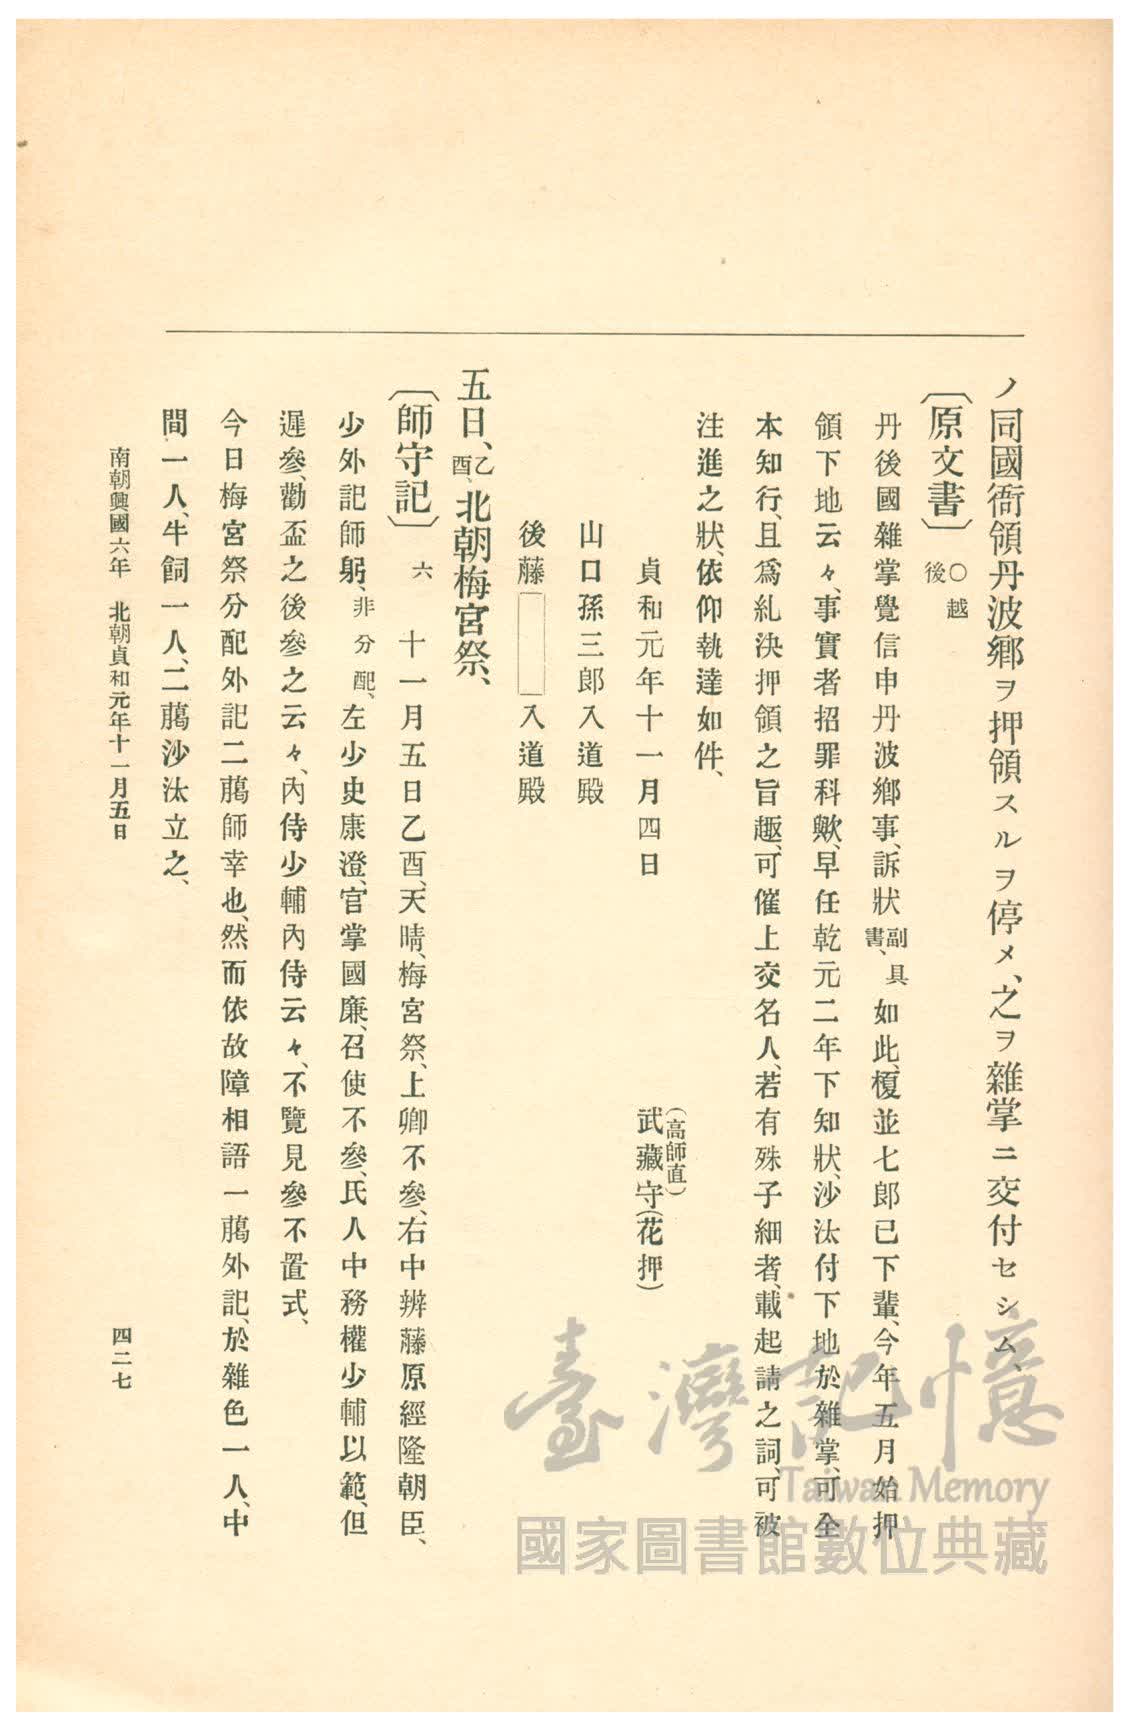 ノ同國衙領丹波鄕ヲ押領スルヲ停メ、之ヲ雜掌ニ交付セシム、
〔原文書〕○越後
丹後國雜掌覺信申丹波鄕事、訴狀副具書、如此、榎並七郎已下輩、今年五月始押
領下地云々、事實者招罪科歟、早任乾元二年下知狀、沙汰付下地於雜掌、可全
本知行、且爲糺決押領之旨趣、可催上交名人、若有殊子細者、載起請之詞、可被
注進之狀、依仰執達如件、
貞和元年十一月四日
武藏守(花押)
(高師直)
山口孫三郎入道殿
後藤□入道殿
五日、乙酉、北朝梅宮祭、
〔師守記〕六
十一月五日乙酉、天晴、梅宮祭、上卿不參、右中辨藤原經隆朝臣、
少外記師躬、非分配、左少史康澄、官掌國廉、召使不參、氏人中務權少輔以範、但
遲參、勸盃之後參之云々、內侍少輔內侍云々、不覽見參不置式、
今日梅宮祭分配外記二﨟師幸也、然而依故障相語一﨟外記、於雜色一人、中
間一人、牛飼一人、二﨟沙汰立之、
南朝興國六年 北朝貞和元年十一月五日
四二七
臺灣記憶
Taiwan Memory
國家圖書館數位典藏